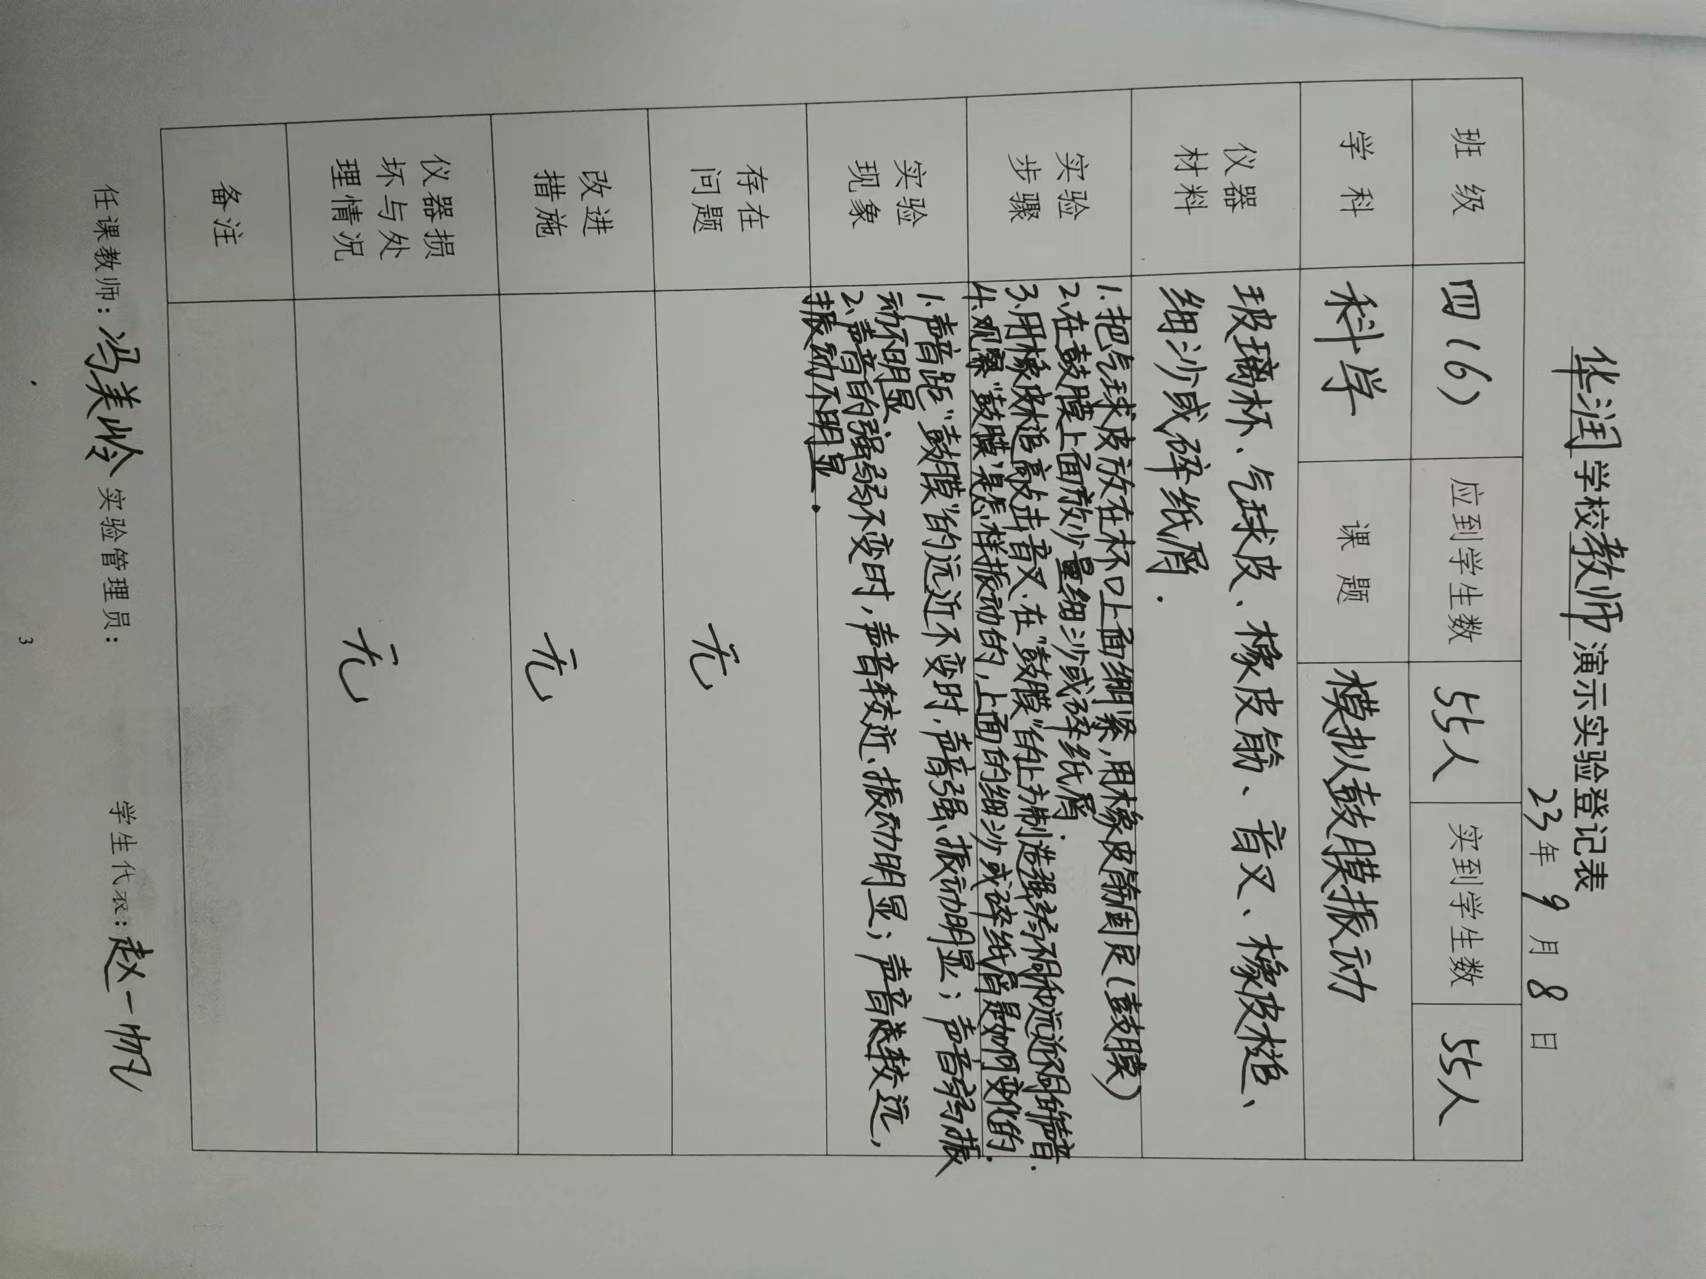 华润学校教师演示实验登记表
23年9月8日
班级 四(6) 应到学生数 55人 实到学生数 55人
学科 科学 课题 模拟鼓膜振动
仪器
材料
玻璃杯、气球皮、橡皮筋、音叉、橡皮槌、
细沙或碎纸屑.
实验
步骤
1.把气球皮放在杯口上面绷紧,用橡皮筋固定(鼓膜)
2.在鼓膜上面放少量细沙或碎纸屑.
3.用橡皮槌敲击音叉.在"鼓膜"的上方制造强弱不同和远近不同的声音.
4.观察"鼓膜"是怎样振动的,上面的细沙或碎纸屑是如何变化的.
实验
现象
1.声音距"鼓膜"的远近不变时,声音强、振动明显;声音弱,振
动不明显
2.声音的强弱不变时,声音较近、振动明显;声音较远,
振动不明显.
存在
问题
无
改进
措施
无
仪器损
坏与处
理情况
无
备注
任课教师:冯美岭 实验管理员: 学生代表:赵一帆
3